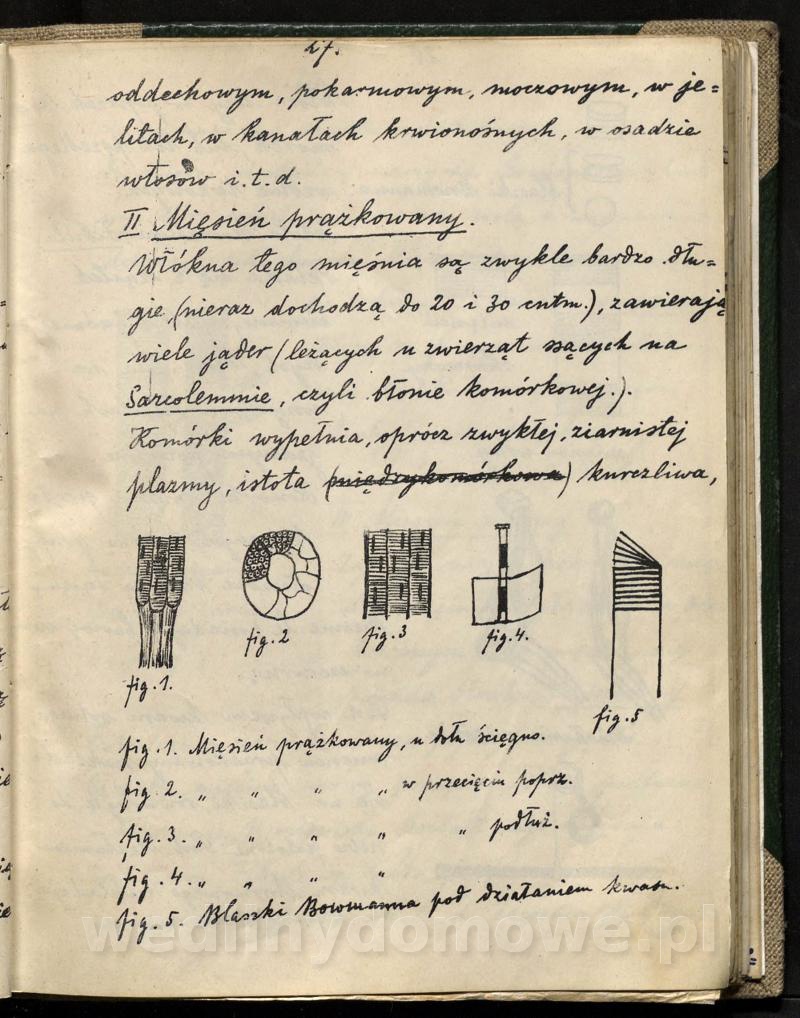 27.
oddechowym, pokarmowym, moczowym, w je=
litach, w kanałach krwionośnych, w osadzie
włosów i.t.d.
II Mięsień prążkowany.
Włókna tego mięśnia są zwykle bardzo dłu=
gie (nieraz dochodzą do 20 i 30 cntm.), zawierają
wiele jąder (leżących u zwierząt ssących na
Sarcolemmie, czyli błonie komórkowej.).
Komórki wypełnia, oprócz zwykłej, ziarnistej
plazmy, istota (międzykomórkowa) kurczliwa,
fig. 1.
fig. 2
fig. 3
fig. 4.
fig. 5
fig. 1. Mięsień prążkowany, u dołu ścięgno.
fig. 2. „ „ „ „ w przecięciu poprz.
fig. 3. „ „ „ „ „ podłuż.
fig. 4. „ „ „ „
fig. 5. Blaszki Bowmanna pod działaniem kwasu.
wedlinydomowe.pl